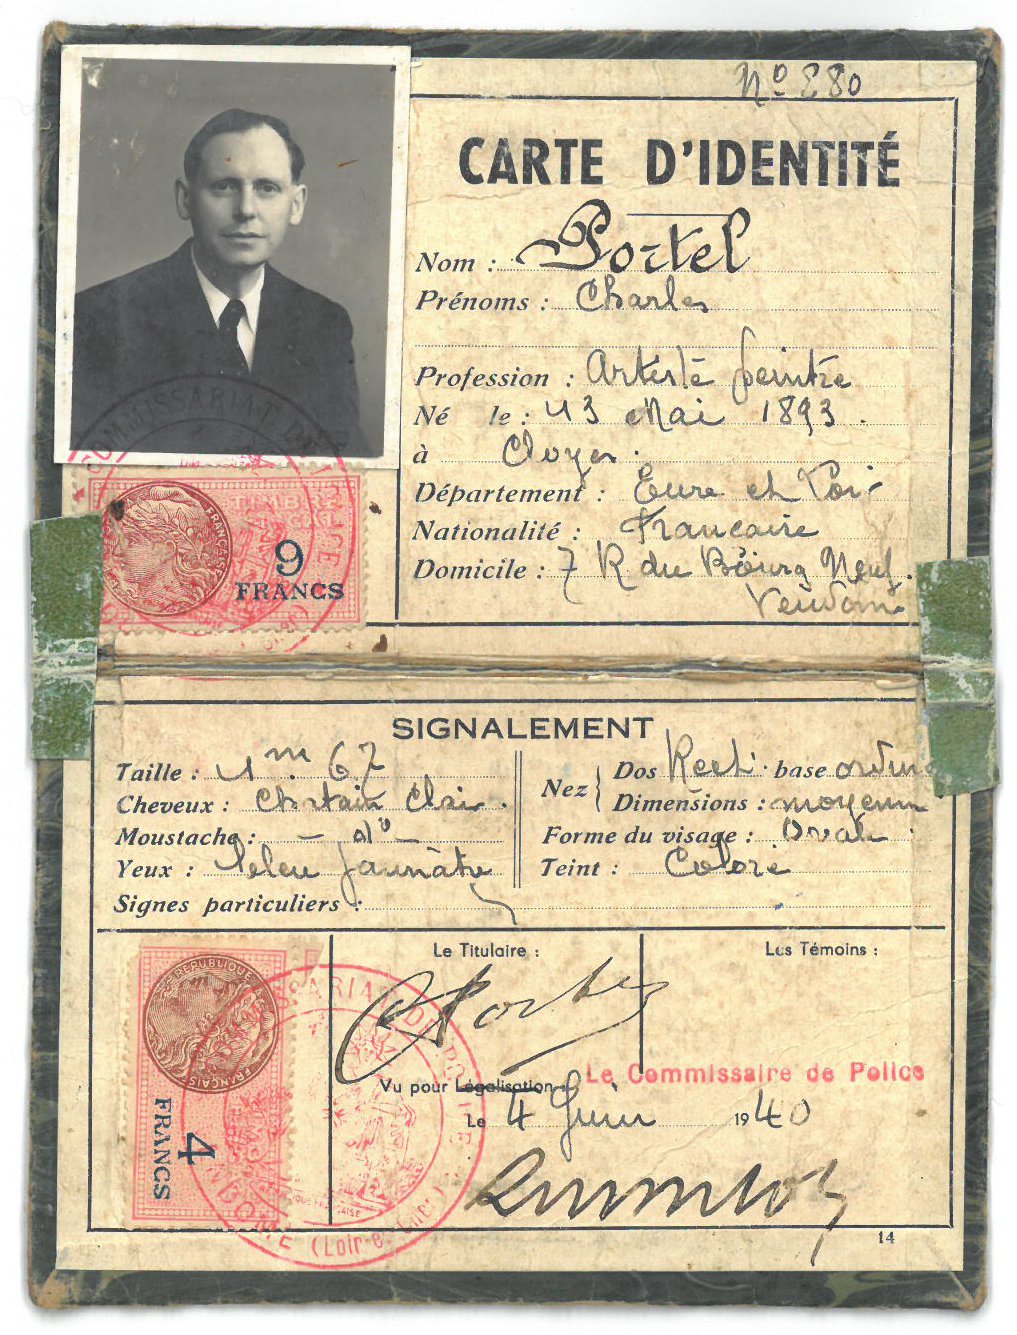 Nº 280
CARTE D'IDENTITÉ
Nom : Portel
Prénoms : Charles
Profession : Artiste peintre
Né le : 13 Mai 1893.
à Cloyes.
Département : Eure et Loir
Nationalité : Française
Domicile : 7 R du Bourg Neuf.
Vendome
COMMISSARIAT
TIMBRE
FISCAL
9
FRANCS
SIGNALEMENT
Taille : 1m 67
Cheveux : Chatain Clair.
Moustache : - dº -
Yeux : bleu jaunâtre
Signes particuliers :
Nez { Dos Rect. base ordin
Dimensions : moyenn
Forme du visage : Ovale
Teint : Coloré
Le Titulaire :
Les Témoins :
REPUBLIQUE
FRANÇAISE
4
FRANCS
COMMISSARIAT DE POLICE
VENDOME (Loir-et-Cher)
Vu pour Légalisation :
Le Commissaire de Police
Le 4 Juin 1940
14